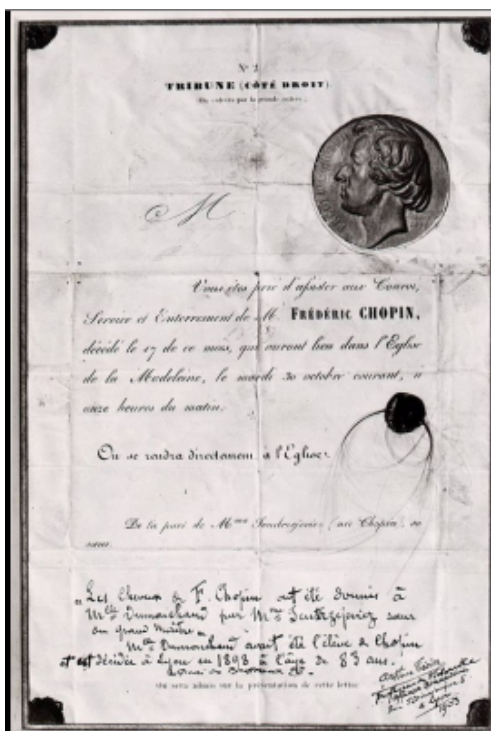 N° 2
TRIBUNE (CÔTÉ DROIT).
On entrera par la grande
M
Vous êtes prié d'assister aux Convoi,
Service et Enterrement de M. FRÉDÉRIC CHOPIN,
décédé le 17 de ce mois, qui auront lieu dans l'Eglise
de la Madeleine, le mardi 30 octobre courant, à
onze heures du matin.
On se rendra directement à l'Eglise.
De la part de Mme (née Chopin), sa
sœur.
"Les Cheveux de F. Chopin ont été donnés à
Mlle Dumarchand par Mme sœur
du grand maître"
Mlle Dumarchand avait été l'élève de Chopin
et est décédée à Lyon en 1898 à l'âge de 83 ans.
On sera admis sur la présentation de cette lettre
à Lyon
1933